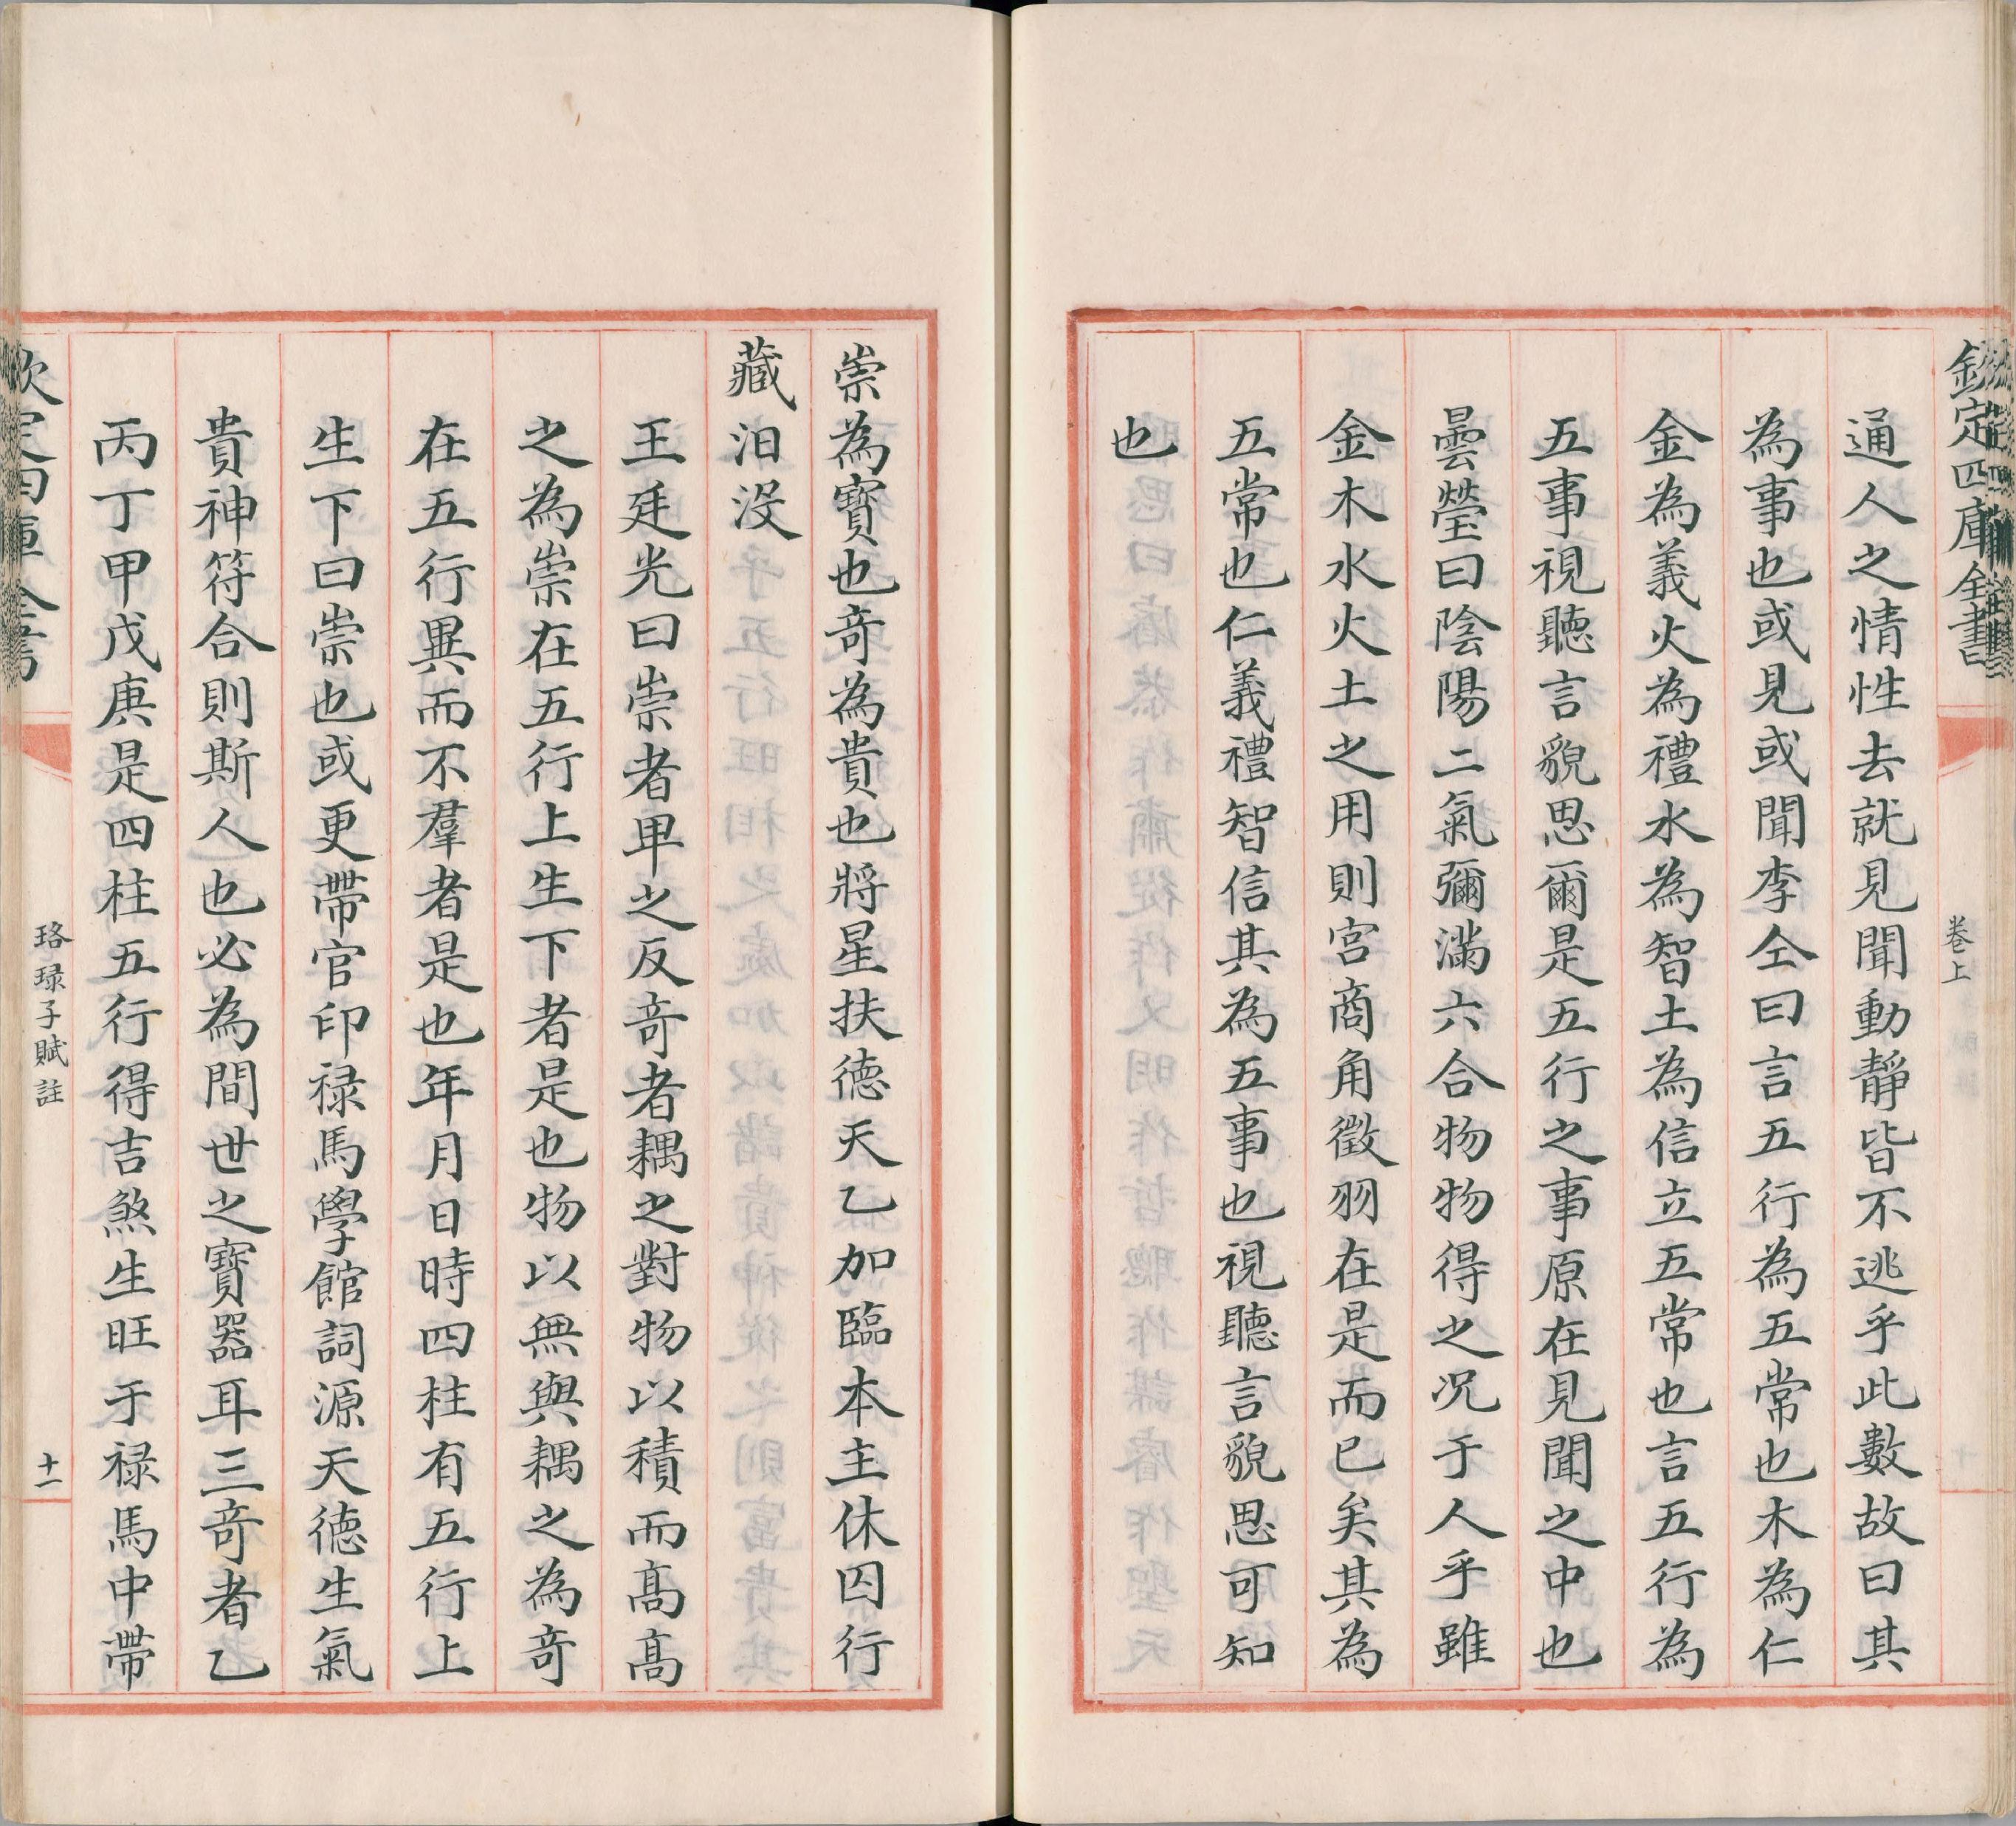 欽定四庫全書
卷上
通人之情性去就見聞動靜皆不逃乎此數故曰其
為事也或見或聞李仝曰言五行為五常也木為仁
金為義火為禮水為智土為信立五常也言五行為
五事視聽言貌思爾是五行之事原在見聞之中也
曇瑩曰陰陽二氣彌滿六合物物得之况于人乎雖
金木水火土之用則宫商角徵羽在是而已矣其為
五常也仁義禮智信其為五事也視聽言貌思可知
也
崇為寳也竒為貴也將星扶德天乙加臨本主休囚行
藏汨没
王廷光曰崇者卑之反竒者耦之對物以積而髙髙
之為崇在五行上生下者是也物以無與耦之為竒
在五行異而不羣者是也年月日時四柱有五行上
生下曰崇也或更帶官印禄馬學館詞源天德生氣
貴神符合則斯人也必為間世之寳器耳三竒者乙
丙丁甲戊庚是四柱五行得吉煞生旺于禄馬中帶
欽定四庫全書
珞琭子賦註
十一